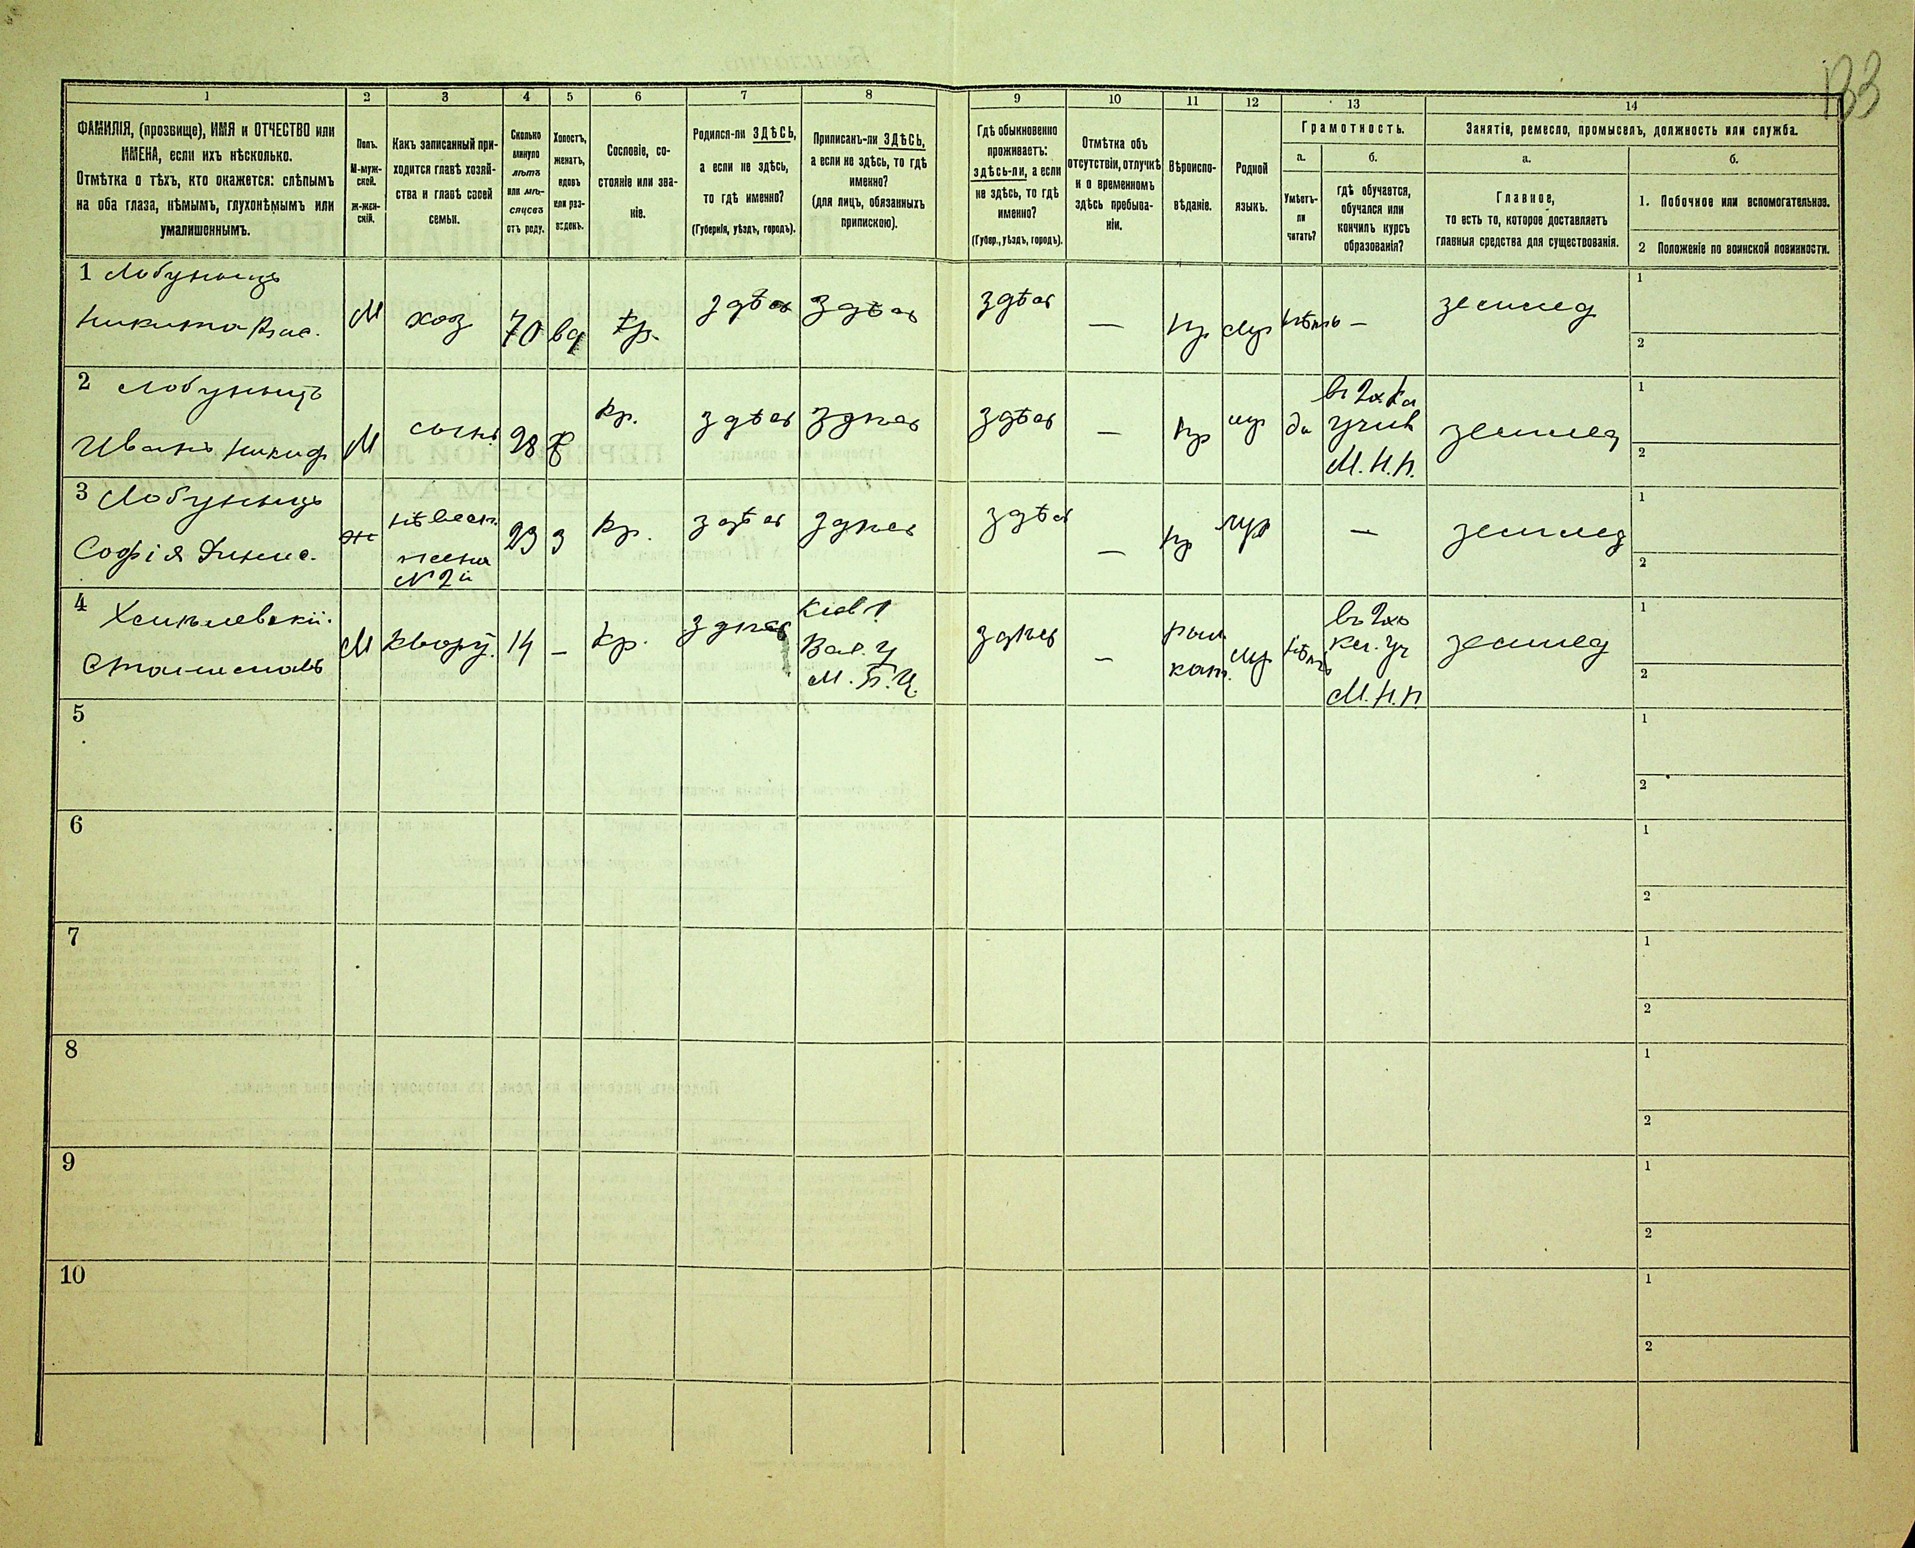 133
1 2 3 4 5 6 7 8 9 10 11 12 13 14
ФАМИЛІЯ, (прозвище), ИМЯ и ОТЧЕСТВО или
ИМЕНА, если ихъ нѣсколько.
Отмѣтка о тѣхъ, кто окажется: слѣпымъ
на оба глаза, нѣмымъ, глухонѣмымъ или
умалишеннымъ.
Полъ.
М-муж-
ской.
ж-жен-
скій.
Какъ записанный при-
ходится главѣ хозяй-
ства и главѣ своей
семьи.
Сколько
минуло
лѣтъ
или мѣ-
сяцевъ
отъ роду.
Холостъ,
женатъ,
вдовъ
или раз-
веденъ.
Сословіе, со-
стояніе или зва-
ніе.
Родился-ли ЗДѢСЬ,
а если не здѣсь,
то гдѣ именно?
(Губернія, уѣздъ, городъ).
Приписанъ-ли ЗДѢСЬ,
а если не здѣсь, то гдѣ
именно?
(для лицъ, обязанныхъ
припискою).
Гдѣ обыкновенно
проживаетъ:
здѣсь-ли, а если
не здѣсь, то гдѣ
именно?
(Губер., уѣздъ, городъ).
Отмѣтка объ
отсутствіи, отлучкѣ
и о временномъ
здѣсь пребыва-
ніи.
Вѣроиспо-
вѣданіе.
Родной
языкъ.
Грамотность.
а.
Умѣетъ-
ли
читать?
б.
гдѣ обучается,
обучался или
кончилъ курсъ
образованія?
Занятіе, ремесло, промыселъ, должность или служба.
а.
Главное,
то есть то, которое доставляетъ
главныя средства для существованія.
б.
1. Побочное или вспомогательное.
2 Положеніе по воинской повинности.
1 Лобунецъ
Никита Вас.
М
хоз
70
вд
кр.
здѣсь
здѣсь
здѣсь
—
пр
мр
нѣтъ
—
землед
1
2
2 Лобунецъ
Иванъ Никиф
М
сынъ
28
ж
кр.
здѣсь
здѣсь
здѣсь
—
пр
мр
да
въ 2хъ кл
учил
М. Н. П.
землед
1
2
3 Лобунецъ
Софія
ж
невѣст.
жена
№ 2й
23
з
кр.
здѣсь
здѣсь
здѣсь
—
пр
мр
—
землед
1
2
4 Хмѣлевскій
Станиславъ
М
14
—
кр.
здѣсь
Кіев г
Вас. у
М. Б. Ц.
здѣсь
—
рим
кат.
мр
нѣтъ
въ 2хъ
кл. уч
М. Н. П.
землед
1
2
5
1
2
6
1
2
7
1
2
8
1
2
9
1
2
10
1
2